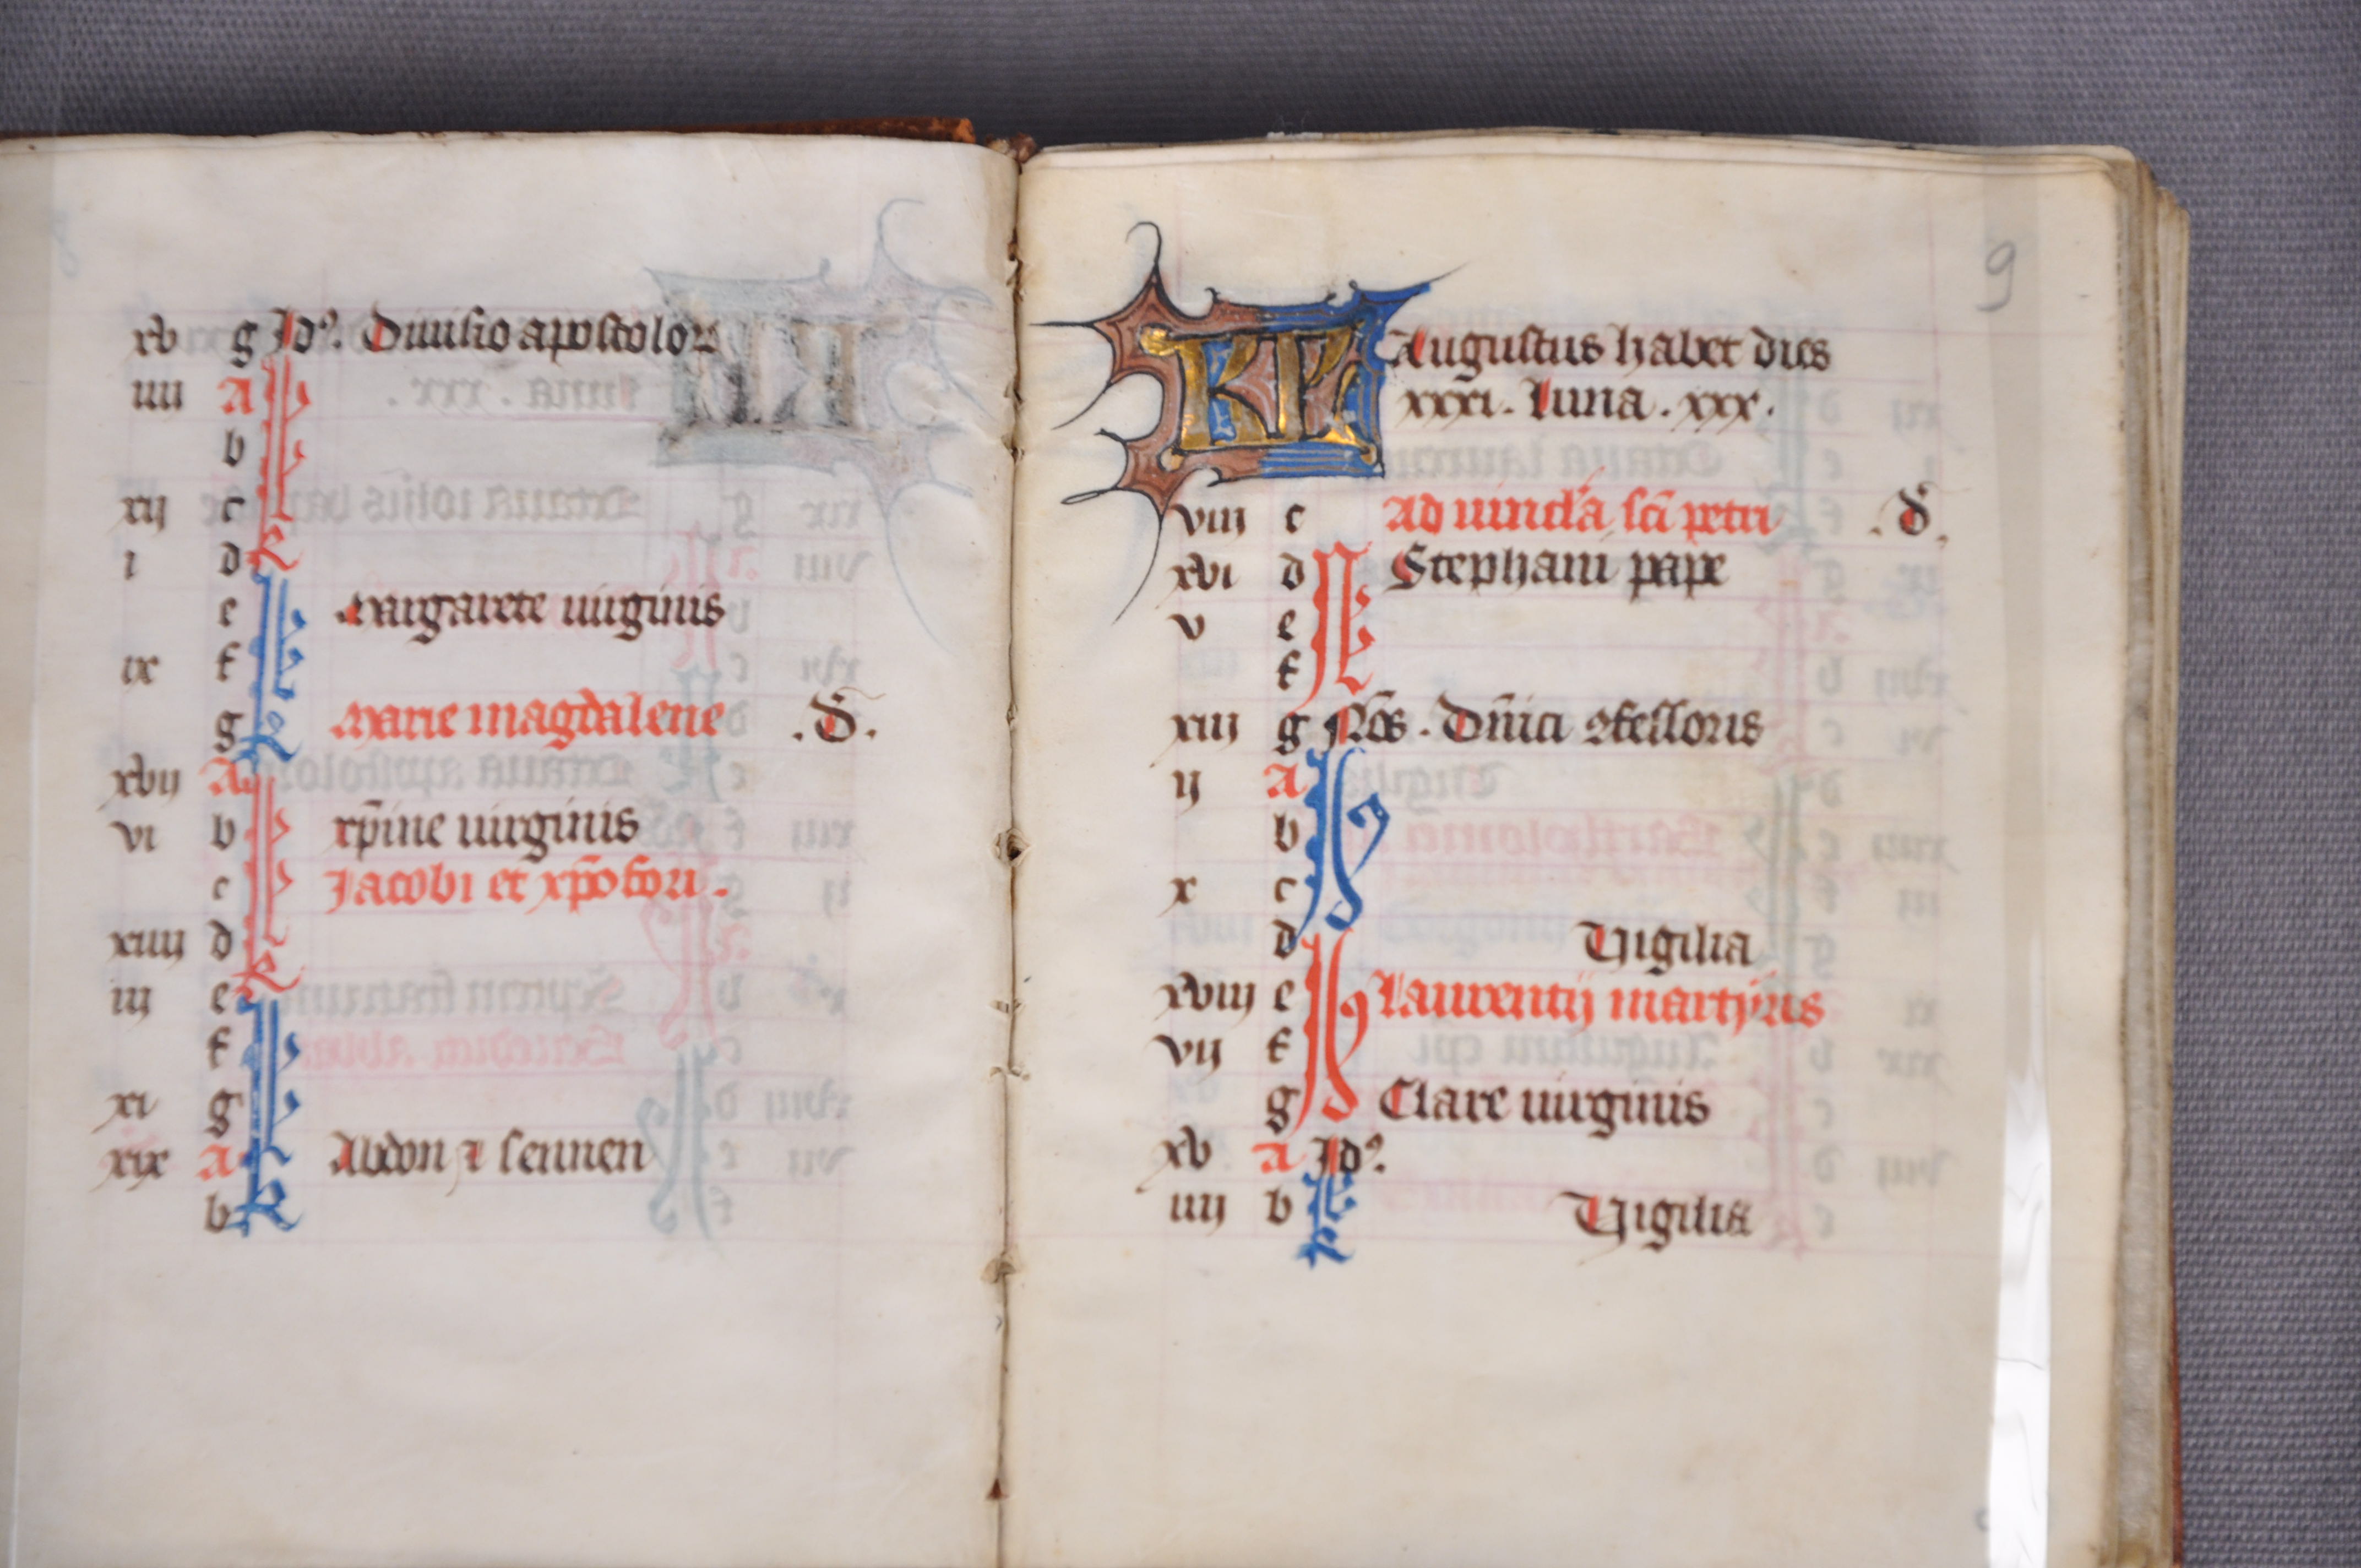 xv g Id⁹. Diuisio apostolor
iiii A
b
xii c
i d
e Margarete uirginis
ix f
g Marie magdalene .d.
xvii A
vi b xp̄ine uirginis
c Iacobi et xp̄ofori.
xiiii d
iii e
f
xi g
xix A Abdon ⁊ sennen
b
9
KL Augustus habet dies
xxxi. Luna. xxx.
viii c Ad uincl'a sc̄i petri .d.
xvi d Stephani pape
v e
f
xiii g Nōs. Dn̄ici ꝯfessoris
ii A
b
x c
d Vigilia
xviii e Laurentij martyris
vii f
g Clare uirginis
xv A Id⁹.
iiii b Vigilia